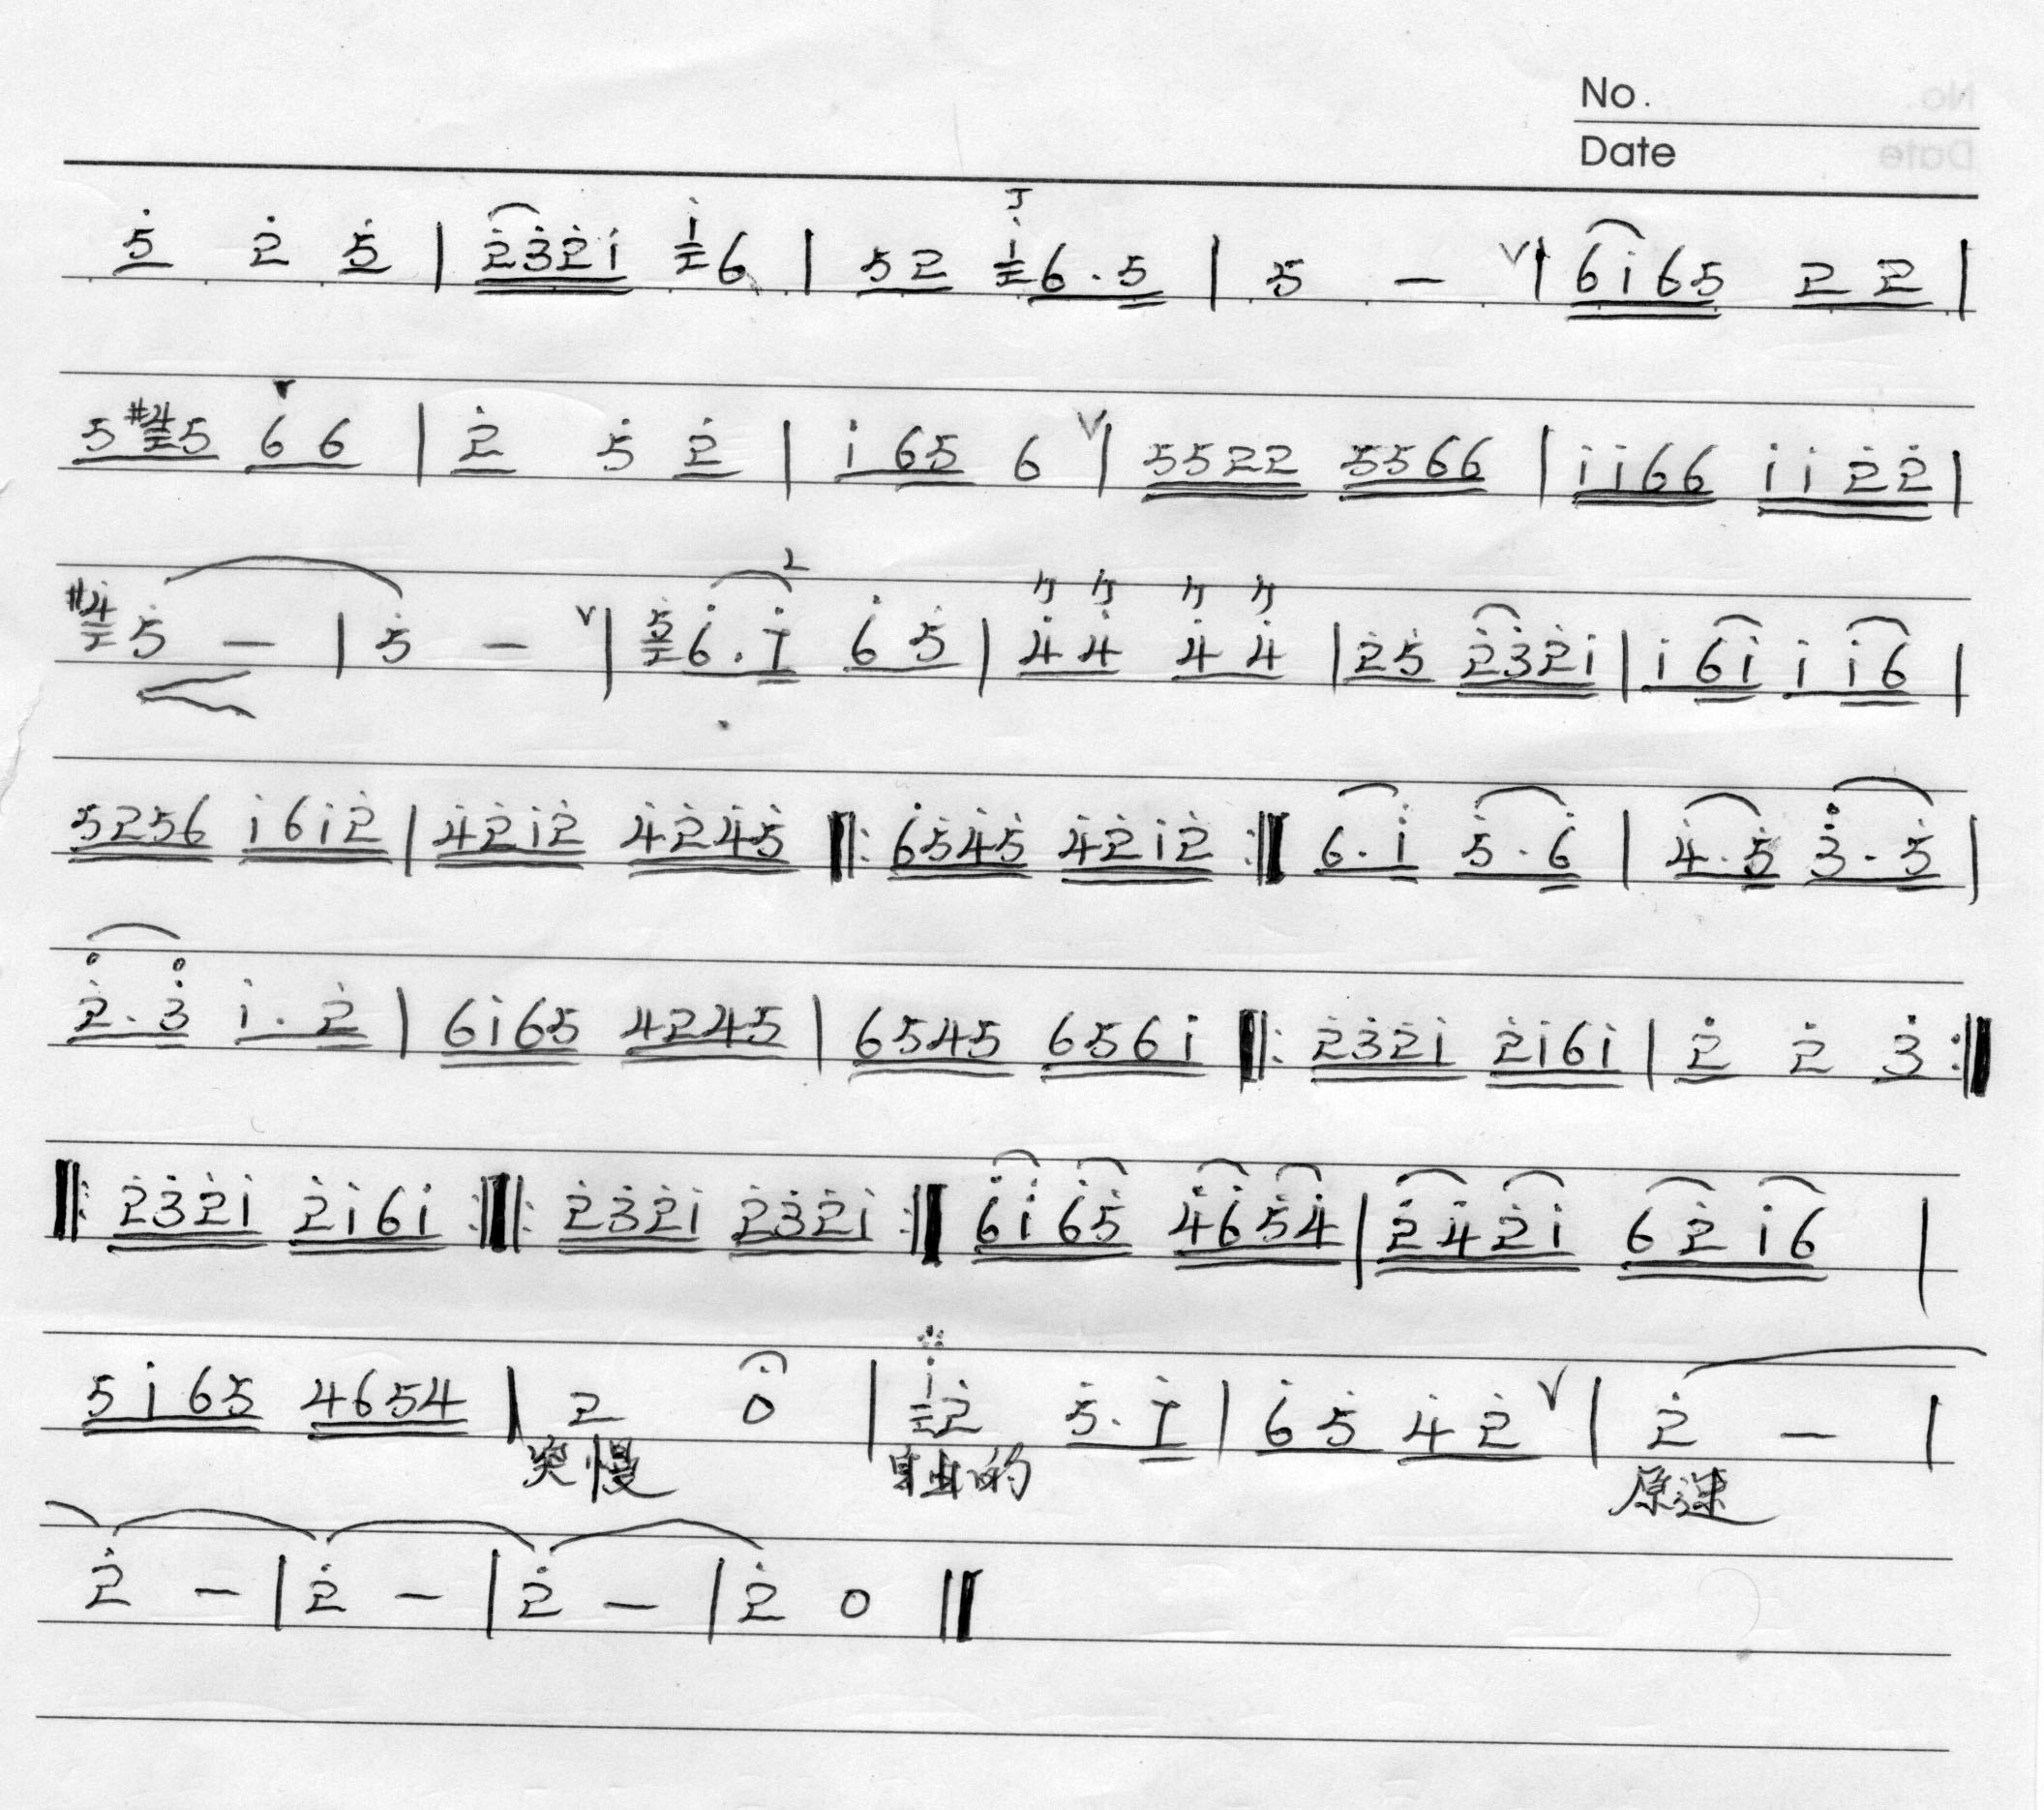 No.
Date
5̇ 2̇ 5̇ | 2̇3̇2̇i i6 | 52 i6.5 | 5 – ∨| 6i65 22 |
5#45 66 | 2̇ 5̇ 2̇ | i 65 6 ∨| 5522 5566 | ii66 ii2̇2̇ |
#4̇5̇ – | 5̇ – ∨| 5̇6̇.i̇ 6̇5̇ | 4̇4̇ 4̇4̇ | 2̇5̇ 2̇3̇2̇i | i 6i i i6 |
5256 i6i2̇ | 4̇2̇i2̇ 4̇2̇4̇5̇ ‖: 6̇5̇4̇5̇ 4̇2̇i2̇ :‖ 6.i 5̇.6̇ | 4̇.5̇ 3̇.5̇ |
2̇.3̇ i.2̇ | 6i65 4245 | 6545 656i ‖: 2̇3̇2̇i 2̇i6i | 2̇ 2̇ 3̇ :‖
‖: 2̇3̇2̇i 2̇i6i :‖: 2̇3̇2̇i 2̇3̇2̇i :‖ 6̇i̇6̇5̇ 4̇6̇5̇4̇ | 2̇4̇2̇i 62̇i6 |
5i65 4654 | 2 0 | i2̇ 5̇.i̇ | 6̇5̇ 4̇2̇ ∨| 2̇ – |
突慢 自由的 原速
2̇ – | 2̇ – | 2̇ – | 2̇ 0 ‖